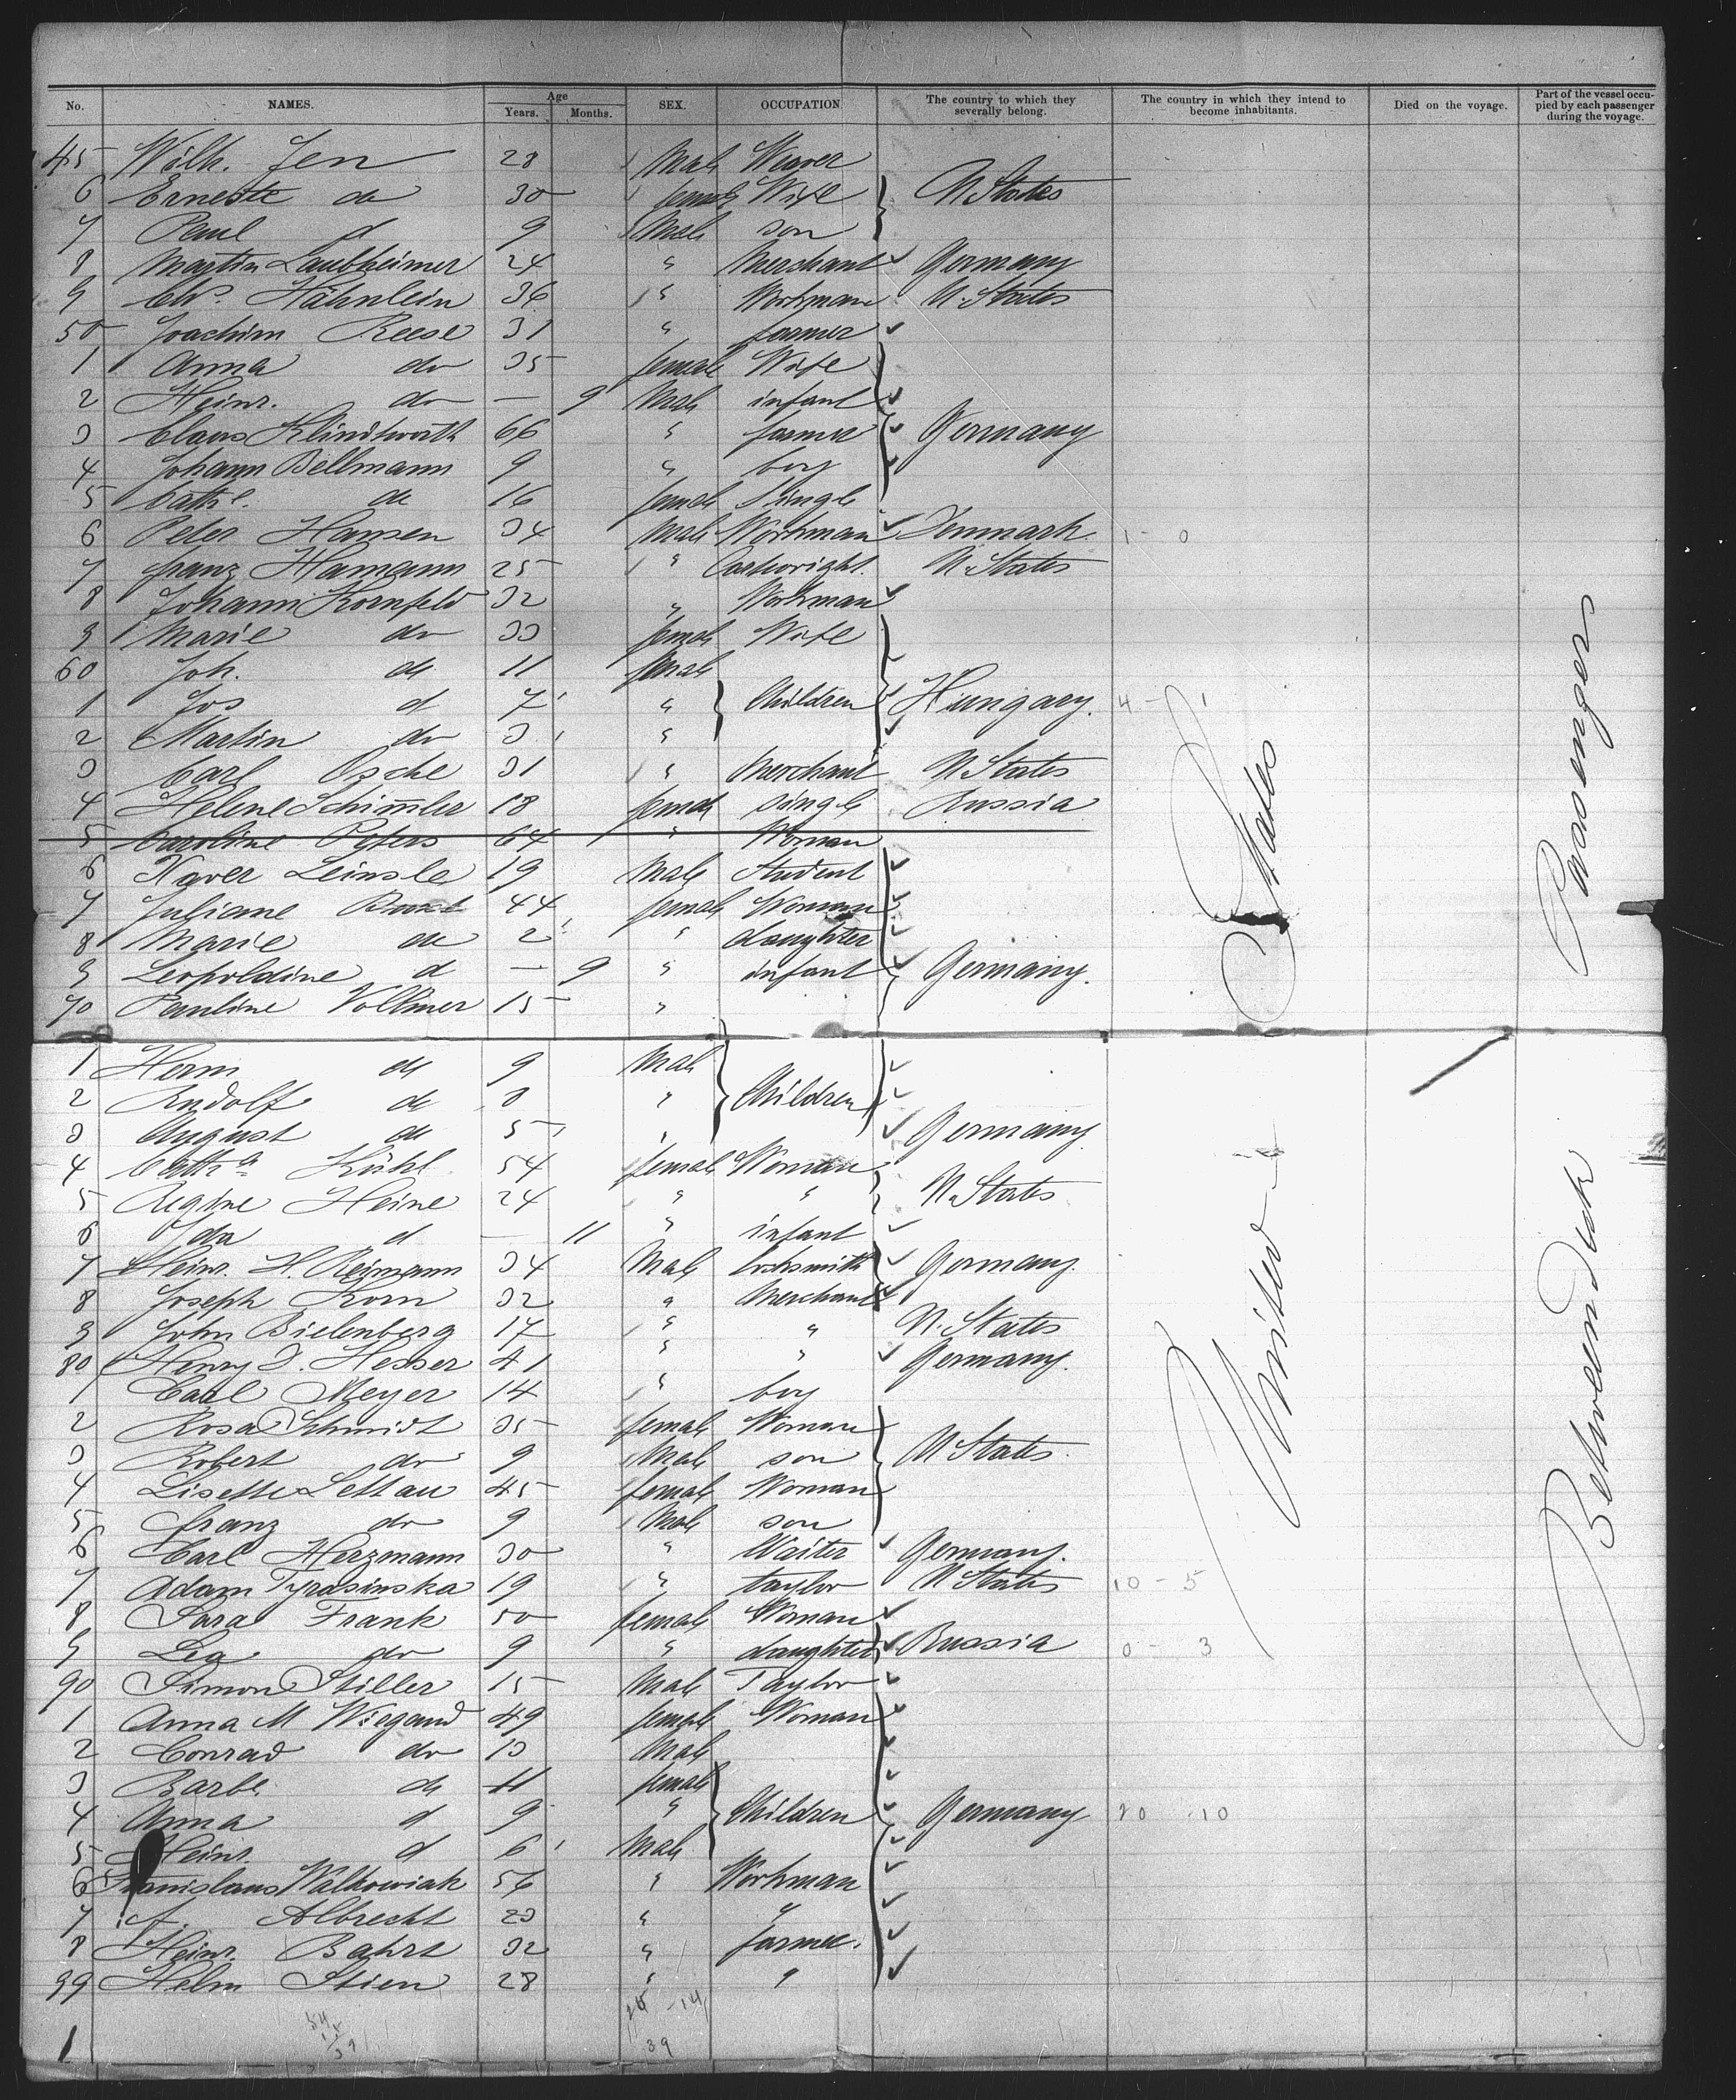 No. NAMES. Age Years. Months. SEX. OCCUPATION The country to which they severally belong. The country in which they intend to become inhabitants. Died on the voyage. Part of the vessel occupied by each passenger during the voyage.
45 Wilh. Jen 28 Male Weaver
6 Ernestte do 30 female Wife U States
7 Paul d 9 Male son
8 Martin Laubheimer 24 " Merchant Germany
9 Chr. Hähnlein 36 " Workman U. States
50 Joachim Reese 31 " farmer
1 Anna do 35 female Wife
2 Heinr. do — 9 Male infant
3 Claus Klindtworth 66 " farmer Germany
4 Johann Bellmann 9 " boy
5 Cathe. do 16 female Single
6 Peter Hansen 34 Male Workman Denmark 1 - 0
7 franz Hamann 25 " Cartwright. U. States
8 Johann Kornfeld 32 " Workman
9 Marie do 33 female Wife
60 Joh. do 11 female
1 Jos d 7 " Children Hungary. 4 - 1
2 Martin do 3 "
3 Carl Osche 31 " Merchant U States
4 Helene Schimmler 18 female single Russia
5 Caroline Peters 64 " Woman
6 Xaver Leinsle 19 Male Student
7 Juliane 44 female Woman
8 Marie do 2 " daughter
9 Leopoldine d — 9 " infant Germany.
70 Pauline Vollmer 15 "
1 Herm do 9 Male
2 Rudolf do 8 " Children
3 August do 5 " Germany
4 Catha Kühl 54 female Woman
5 Regine Heine 24 " " U. States
6 Ida d — 11 " infant
7 Heinr. H. Reimann 34 Male locksmith Germany.
8 Joseph Korn 32 " Merchant
9 John Bielenberg 17 " " U. States
80 Henry D. Hesser 41 " " Germany.
1 Carl Meyer 14 " boy
2 Rosa Schmidt 35 female Woman
3 Robert do 9 Male son U States.
4 Lisette Lettau 45 female Woman
5 franz do 9 Male son
6 Carl Herzmann 30 " Waiter Germany.
7 Adam Tyrasinska 19 " taylor U States 10 - 5
8 Sara Frank 50 female Woman
9 Lea do 9 " daughter Russia 0 - 3
90 Simon Stiller 15 Male Taylor
1 Anna M Wiegand 49 female Woman
2 Conrad do 13 Male
3 Barbe do 11 female
4 Anna d 9 " Children Germany 20 10
5 Heinr. d 6 Male
6 Stanislaus Walkowiak 56 " Workman
7 Albrecht 23 " "
8 Heinr. Bahrs 32 " farmer.
99 Helm Stien 28 " "
United States
Passenger
Betweendeck
25 - 14
39
1